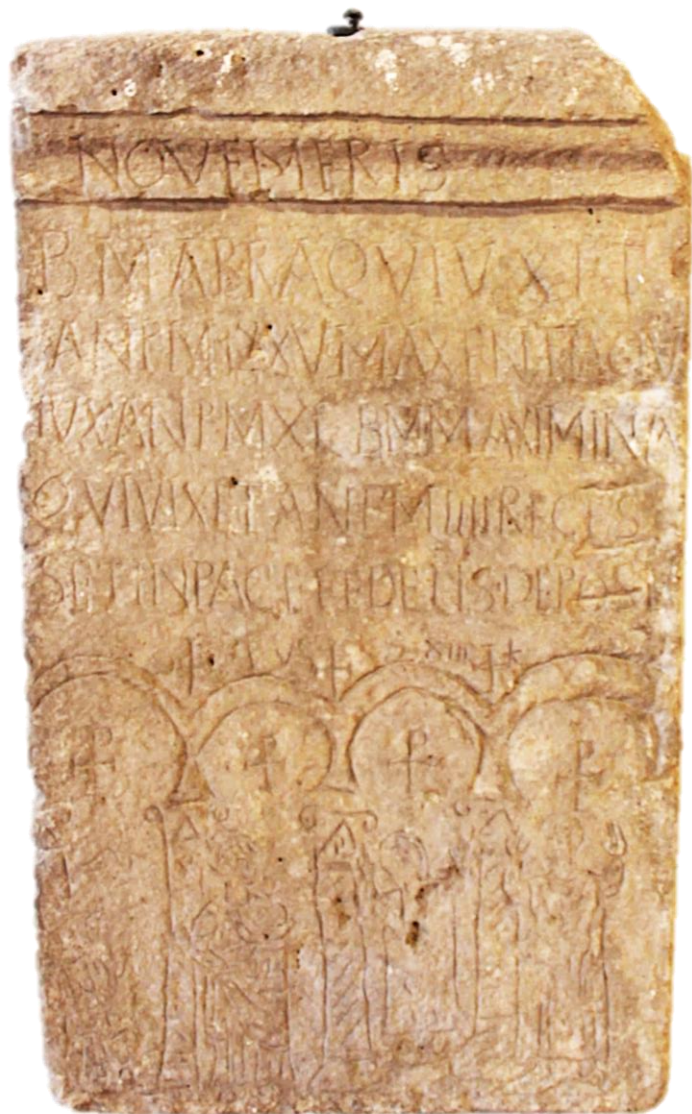 NOVEMERIS
B M ABRAQVIVXIT
ANPMIZXVMAXENTIAQV
IVXANPMXI BMMAXIMINA
QVIVIXETANPMIIIIRECES
SETINPACEFEDELISDEPOSI